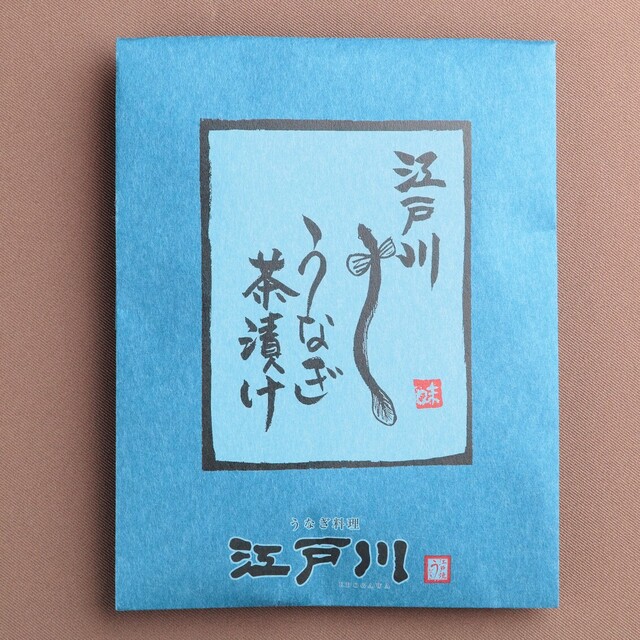 江戸川
うなぎ
茶漬け
味
うなぎ料理
江戸川
EDOGAWA